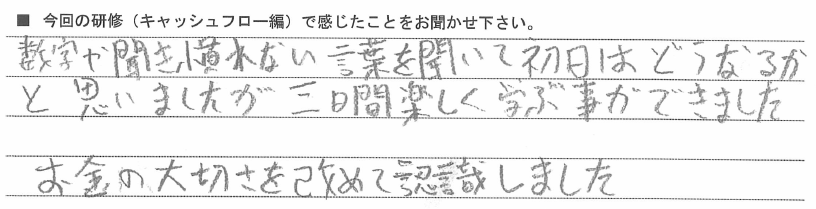 ■ 今回の研修（キャッシュフロー編）で感じたことをお聞かせ下さい。
数字や聞き慣れない言葉を聞いて初日はどうなるか
と思いましたが三日間楽しく学ぶ事ができました
お金の大切さを改めて認識しました